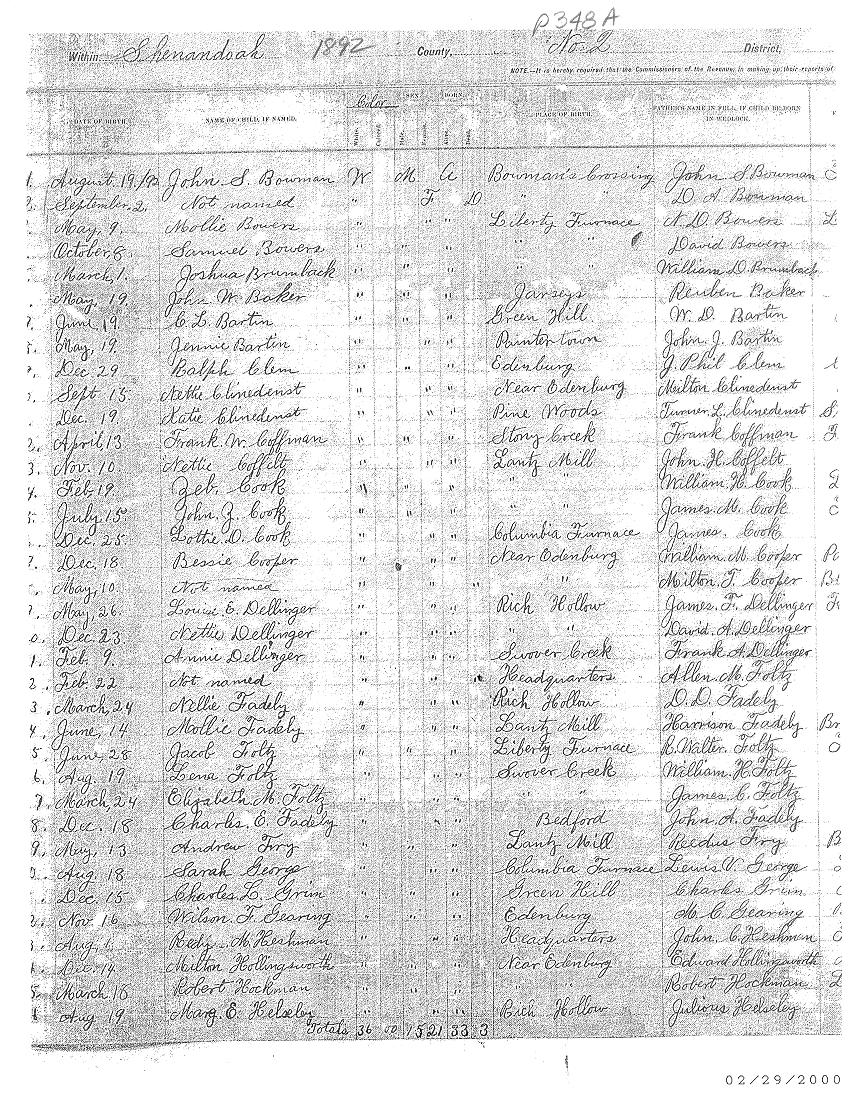 P348A
Within Shenandoah 1892 County, No. 2 District,
NOTE.—It is hereby required that the Commissioners of the Revenue, in making up their reports of
Color SEX. BORN.
DATE OF BIRTH. NAME OF CHILD, IF NAMED. White. Colored. Male. Female. Alive. Dead. PLACE OF BIRTH. FATHER'S NAME IN FULL, IF CHILD BE BORN IN WEDLOCK.
1. August 19/92 John S. Bowman W M A Bowman's Crossing John S. Bowman
2. September 2, Not named " F D " D A Bowman
May, 9. Mollie Bowers " " " Liberty Furnace N. D. Bowers
October, 8. Samuel Bowers " " " " " David Bowers
March, 1. Joshua Brumback " " " " " William D. Brumback
May, 19 John W. Baker " " " Jarseys Reuben Baker
7. June, 19 C. L. Bartin " " " Green Hill W. D. Bartin
May, 19. Jennie Bartin " " " Painter town John. J. Bartin
Dec 29 Ralph Clem " " " Edenburg J. Phil Clem
Sept 15 Nettie Clinedenst " " " Near Edenburg Milton Clinedenst
Dec. 19 Katie Clinedenst " " " Pine Woods Turner. L. Clinedenst S.
2. April, 13 Frank. W. Coffman " " " Stony Creek Frank Coffman F
3. Nov. 10 Nettie Coffelt " " " Lantz Mill John. H. Coffelt
4. Feb. 19 Zeb. Cook " " " " " William. H. Cook
5. July, 15 John. Z. Cook " " " " " James. M. Cook
Dec. 25 Lottie. D. Cook " " " Columbia Furnace James. Cook
7. Dec. 18 Bessie Cooper " " " Near Edenburg William. M. Cooper
May, 10 Not named " " " " " Milton. T. Cooper
May 26. Louise E. Dellinger " " " Rich Hollow James. F. Dellinger
0. Dec 23 Nettie Dellinger " " " " " David. A. Dellinger
1. Feb. 9. Annie Dellinger " " " Swover Creek Frank A. Dellinger
2. Feb. 22 Not named " " " Headquarters Allen. M. Foltz
3. March, 24 Nellie Fadely " " " Rich Hollow D. D. Fadely
4. June, 14 Mollie Fadely " " " Lantz Mill Harrison Fadely Br
5 June, 28 Jacob Foltz " " " Liberty Furnace R. Walter. Foltz
6. Aug. 19 Lena Foltz " " " Swover Creek William. H. Foltz
7. March, 24 Elizabeth. M. Foltz " " " " " James. C. Foltz
8. Dec. 18 Charles. E. Fadely " " " Bedford John. A. Fadely
9. May, 13 Andrew Fry " " " Lantz Mill Reedus Fry B
Aug. 18 Sarah George " " " Columbia Furnace Lewis V. George
Dec. 15 Charles. L. Grim " " " Green Hill Charles Grim
Nov. 16 Wilson. F. Gearing " " " Edenburg M. C. Gearing
Aug. 6 M. Heshman " " " Headquarters John. C. Heshman
Dec. 14 Milton Hollingsworth " " " Near Edenburg Edward Hollingsworth
5. March. 18 Robert Hockman " " " " " Robert Hockman
Aug 19 Marg. E. Helseley " " " Rich Hollow Julious Helseley
Totals 36 00 15 21 33 3
02/29/2000